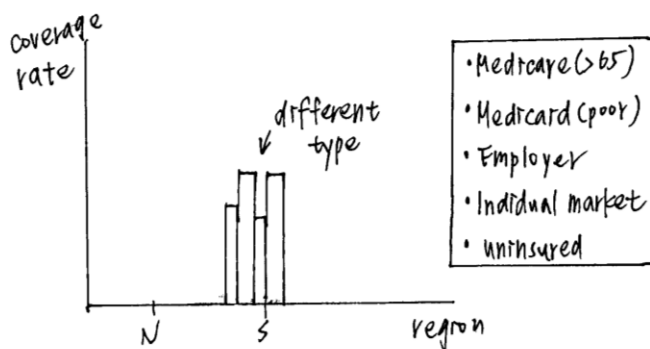 coverage
rate
different
type
N
S
region
• Medicare (>65)
• Medicard (poor)
• Employer
• Indidual market
• uninsured